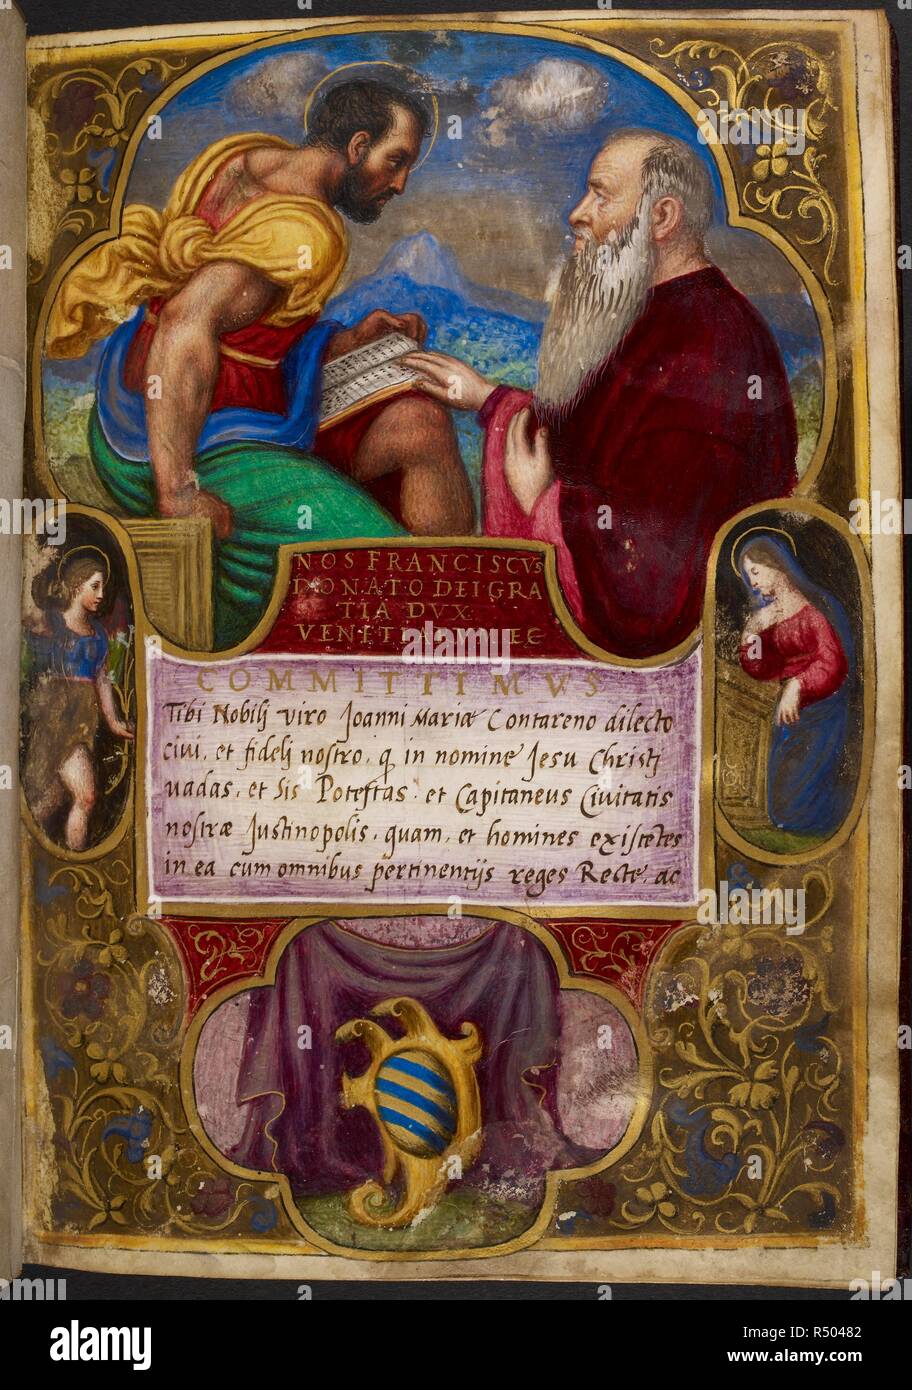 2
NOS FRANCISCVS
DONATO DEI GRA
TIA DVX
VENETIARVM EC
COMMITTIMVS
Tibi Nobilj viro Joanni Mariæ Contareno dilecto
civi, et fidelj nostro, q in nomine Jesu Christj
vadas, et sis Potestas, et Capitaneus Civitatis
nostræ Justinopolis, quam, et homines existetes
in ea cum omnibus pertinentijs reges Recte, ac
alamy
Image ID: R50482
www.alamy.com